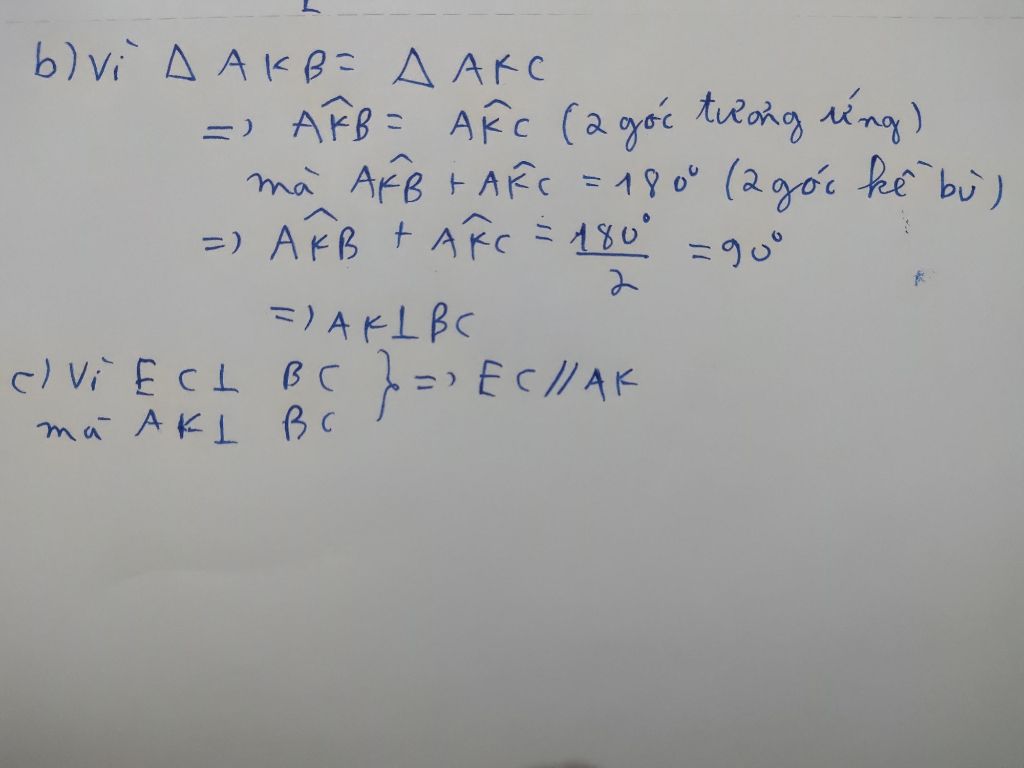 b) Vì Δ AKB = Δ AKC
=> AK̂B = AK̂C (2 góc tương ứng)
mà AK̂B + AK̂C = 180° (2 góc kề bù)
=> AK̂B + AK̂C = 180°/2 = 90°
=> AK ⊥ BC
c) Vì EC ⊥ BC } => EC // AK
mà AK ⊥ BC